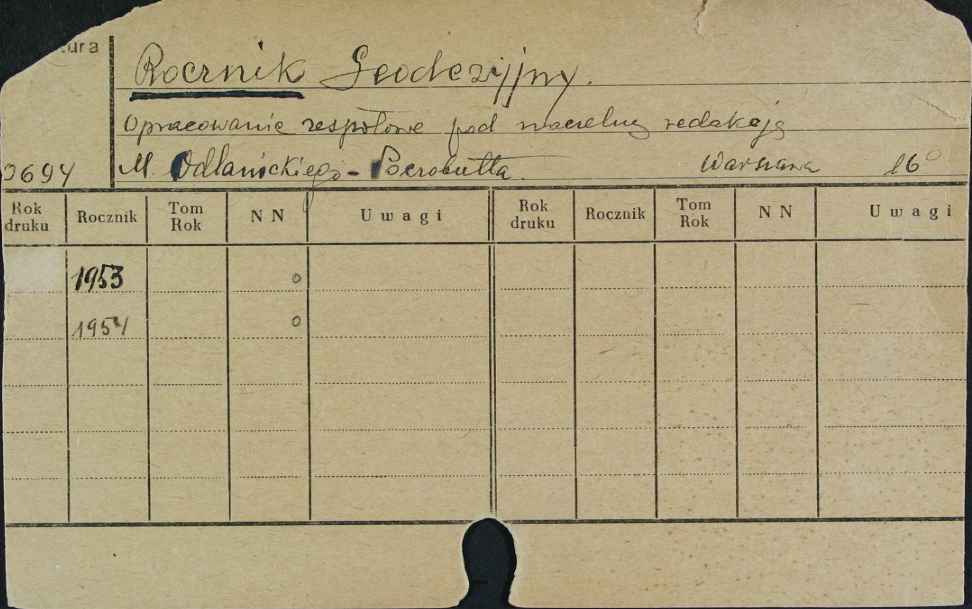 tura
Rocznik Geodezyjny.
Opracowanie zespołowe pod naczelną redakcją
0694 M. Odlanickiego-Poczobutta. Warszawa 16°
Rok druku Rocznik Tom Rok N N Uwagi Rok druku Rocznik Tom Rok N N Uwagi
1953 0
1954 0